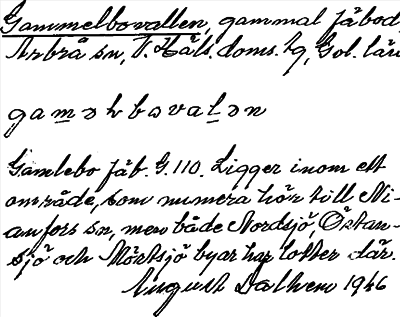 Gammelbovallen, gammal fäbod
Arbrå sn, V. Häls. doms. hg, Gol. län
gaməlbovalən
Gamlebo fäb. G. 110. Ligger inom ett
område, som numera hör till Ni-
anfors sn, men både Nordsjö, Östan-
sjö och Mörtsjö byar har lotter där.
August Dalhem 1946